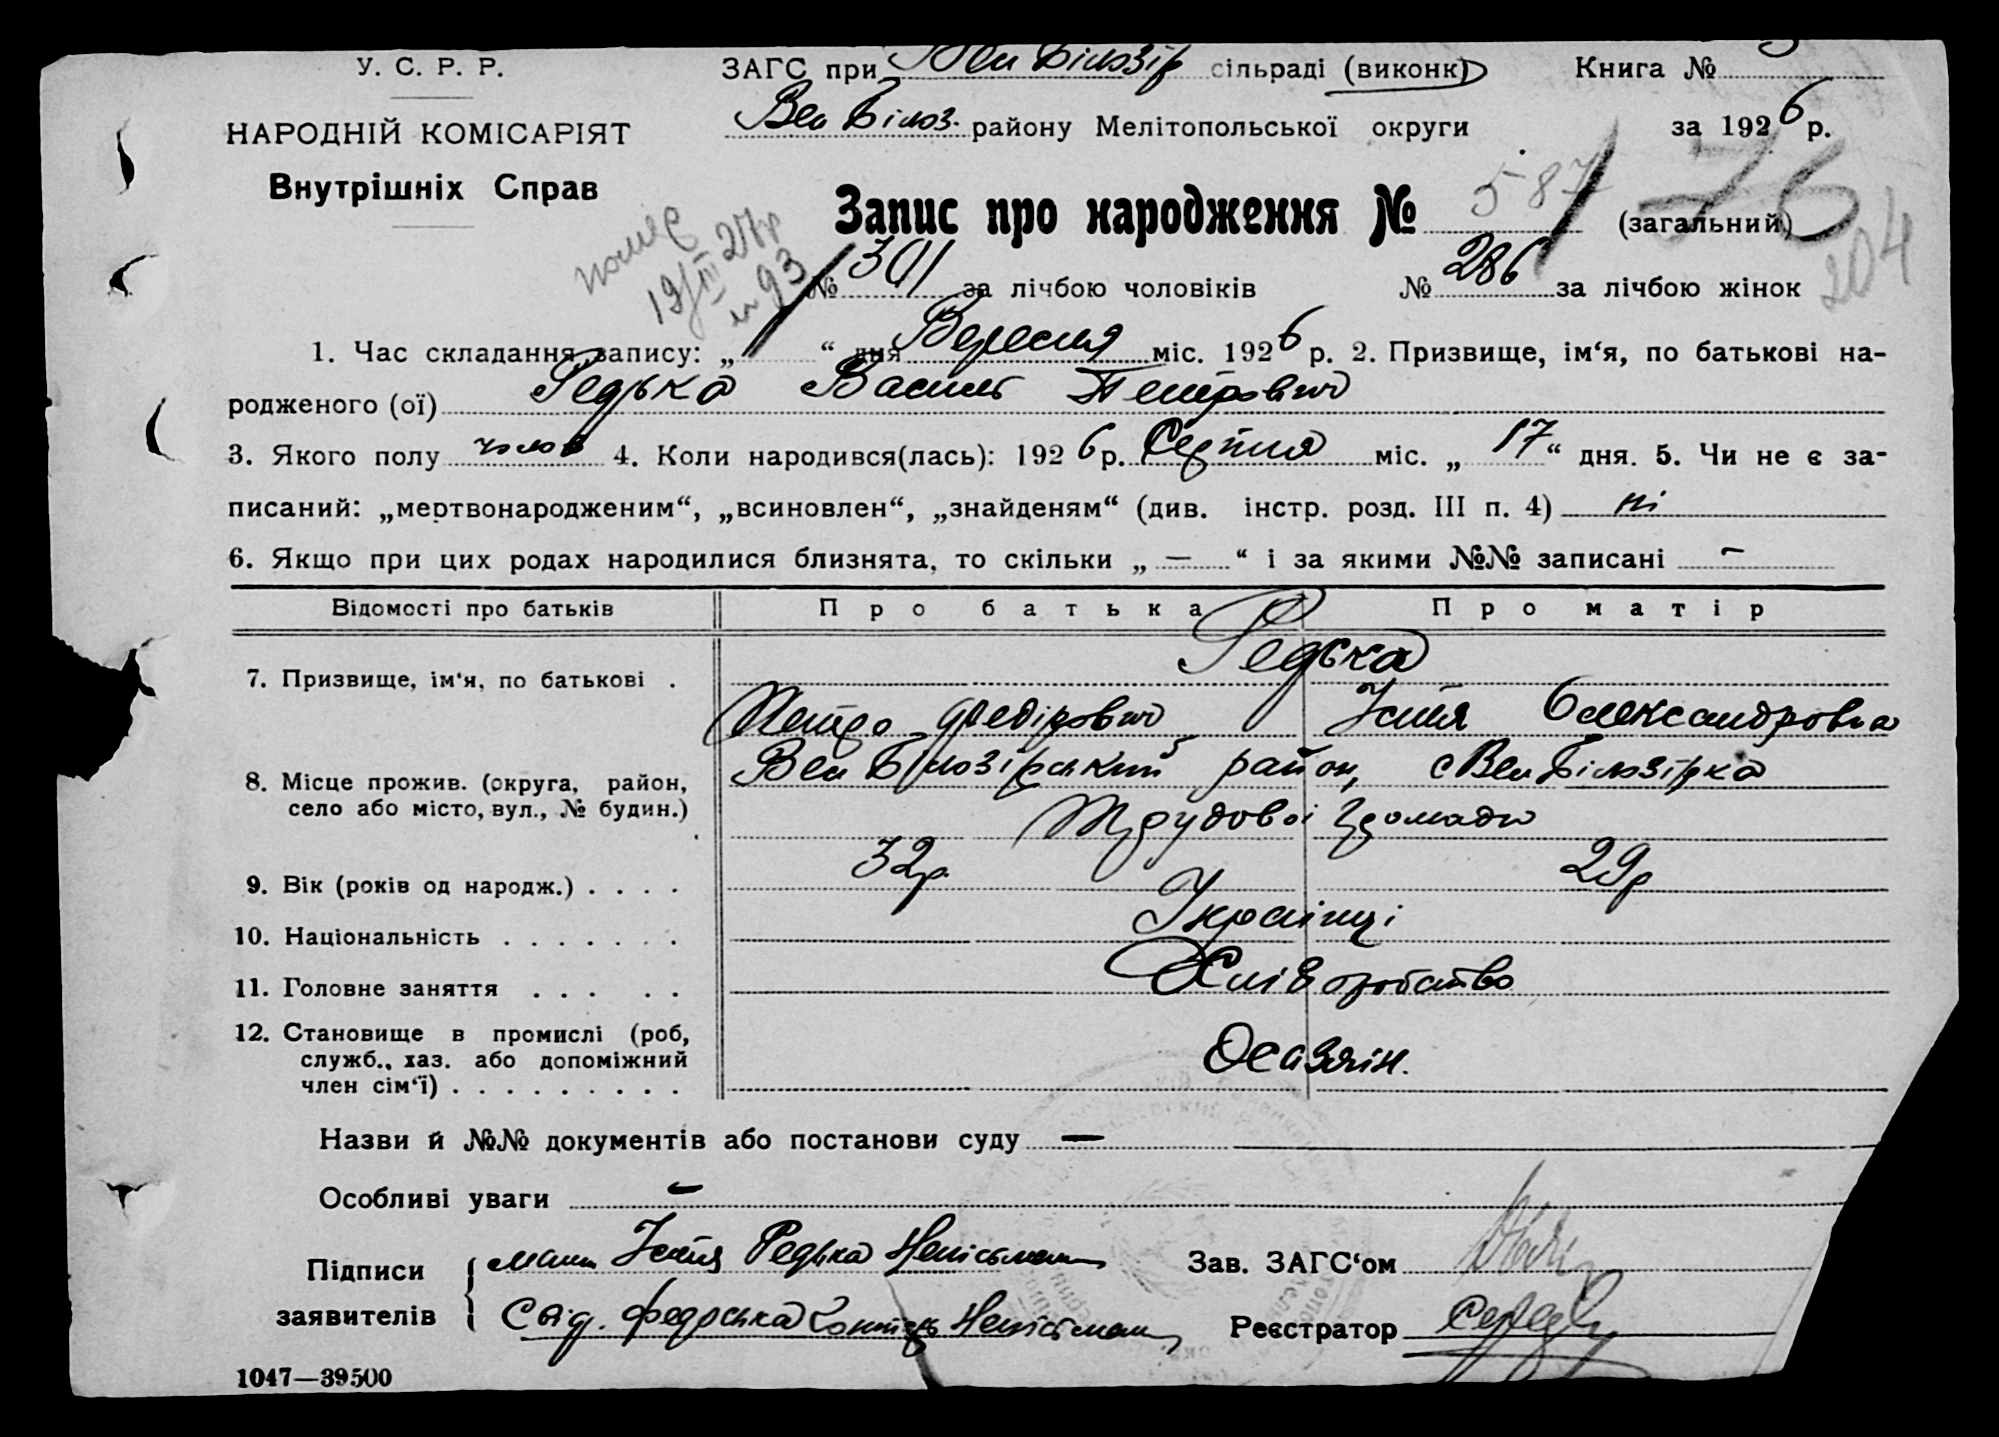 У. С. Р. Р.
ЗАГС при Вел Білозір сільраді (виконк) Книга №
НАРОДНІЙ КОМІСАРІЯТ
Вел Білоз. району Мелітопольської округи за 1926 р.
Внутрішніх Справ
Запис про народження № 587 (загальний) 76
204
помер
19/III 27р
№ 93
№ 301 за лічбою чоловіків № 286 за лічбою жінок
1. Час складання запису: „ “ дня Вересня міс. 1926 р. 2. Призвище, ім‘я, по батькові на-
родженого (ої) Редька Василь Петрович
3. Якого полу чолов 4. Коли народився(лась): 1926 р. Серпня міс. „ 17 “ дня. 5. Чи не є за-
писаний: „мертвонародженим“, „всиновлен“, „знайденям“ (див. інстр. розд. III п. 4) ні
6. Якщо при цих родах народилися близнята, то скільки „ — “ і за якими №№ записані –
Відомості про батьків Про батька Про матір
Редька
7. Призвище, ім‘я, по батькові .
Петро Федірович Устя Олександровна
8. Місце прожив. (округа, район, село або місто, вул., № будин.)
Вел Білозірський район, с Вел Білозірка
Трудової громади
9. Вік (років од народж.) . . . . 32р 29р
10. Національність . . . . . . . Українці
11. Головне заняття . . . . . Хліборобство
12. Становище в промислі (роб, служб., хаз. або допоміжний член сім‘ї) . . . . . . . . .
Осазяін.
Назви й №№ документів або постанови суду —
Особливі уваги –
Підписи заявителів
мати Устя Редька Непісьмен
Свід. Федоська Неписьмен
Зав. ЗАГС‘ом
Реєстратор
1047—39500